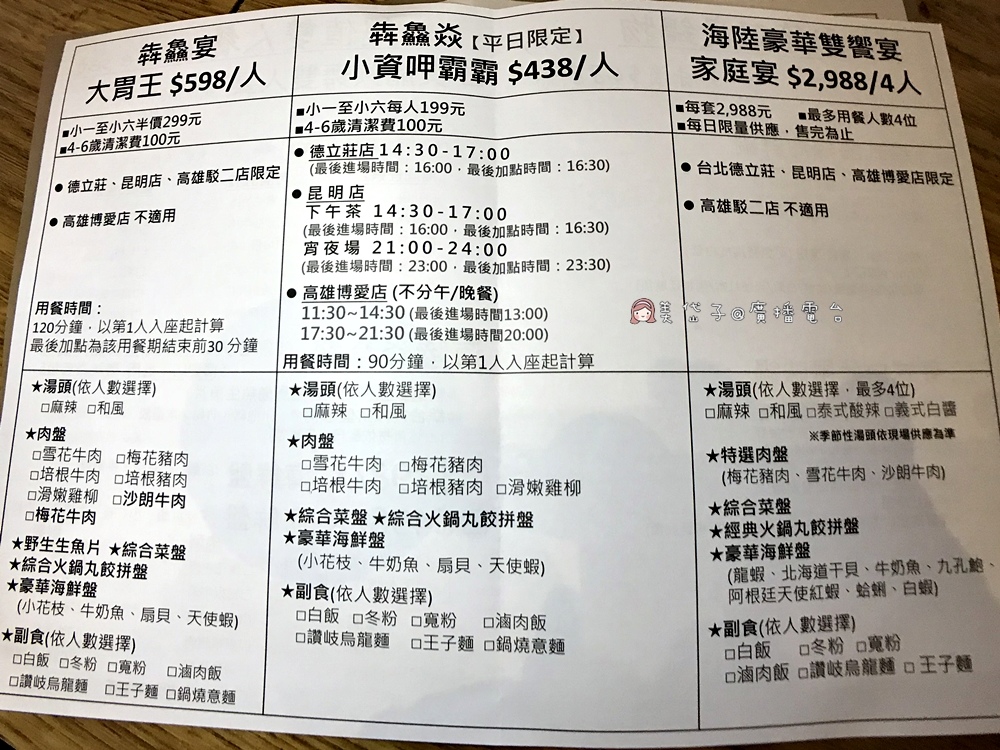 犇鱻宴
大胃王 $598/人
■小一至小六半價299元
■4-6歲清潔費100元
● 德立莊、昆明店、高雄駁二店限定
● 高雄博愛店 不適用
用餐時間：
120分鐘，以第1人入座起計算
最後加點為該用餐期結束前30 分鐘
★湯頭(依人數選擇)
□麻辣 □和風
★肉盤
□雪花牛肉 □梅花豬肉
□培根牛肉 □培根豬肉
□滑嫩雞柳 □沙朗牛肉
□梅花牛肉
★野生生魚片 ★綜合菜盤
★綜合火鍋丸餃拼盤
★豪華海鮮盤
(小花枝、牛奶魚、扇貝、天使蝦)
★副食(依人數選擇)
□白飯 □冬粉 □寬粉 □滷肉飯
□讚岐烏龍麵 □王子麵 □鍋燒意麵
犇鱻焱【平日限定】
小資呷霸霸 $438/人
■小一至小六每人199元
■4-6歲清潔費100元
● 德立莊店 14:30-17:00
(最後進場時間：16:00，最後加點時間：16:30)
● 昆明店
下午茶 14:30-17:00
(最後進場時間：16:00，最後加點時間：16:30)
宵夜場 21:00-24:00
(最後進場時間：23:00，最後加點時間：23:30)
● 高雄博愛店 (不分午/晚餐)
11:30~14:30 (最後進場時間13:00)
17:30~21:30 (最後進場時間20:00)
用餐時間：90分鐘，以第1人入座起計算
★湯頭(依人數選擇)
□麻辣 □和風
★肉盤
□雪花牛肉 □梅花豬肉
□培根牛肉 □培根豬肉 □滑嫩雞柳
★綜合菜盤 ★綜合火鍋丸餃拼盤
★豪華海鮮盤
(小花枝、牛奶魚、扇貝、天使蝦)
★副食(依人數選擇)
□白飯 □冬粉 □寬粉 □滷肉飯
□讚岐烏龍麵 □王子麵 □鍋燒意麵
海陸豪華雙饗宴
家庭宴 $2,988/4人
■每套2,988元 ■最多用餐人數4位
■每日限量供應，售完為止
● 台北德立莊、昆明店、高雄博愛店限定
● 高雄駁二店 不適用
美岱子@廣播電台
★湯頭(依人數選擇，最多4位)
□麻辣 □和風 □泰式酸辣 □義式白醬
※季節性湯頭依現場供應為準
★特選肉盤
(梅花豬肉、雪花牛肉、沙朗牛肉)
★綜合菜盤
★經典火鍋丸餃拼盤
★豪華海鮮盤
(龍蝦、北海道干貝、牛奶魚、九孔鮑、
阿根廷天使紅蝦、蛤蜊、白蝦)
★副食(依人數選擇)
□白飯 □冬粉 □寬粉
□滷肉飯 □讚岐烏龍麵 □ 王子麵